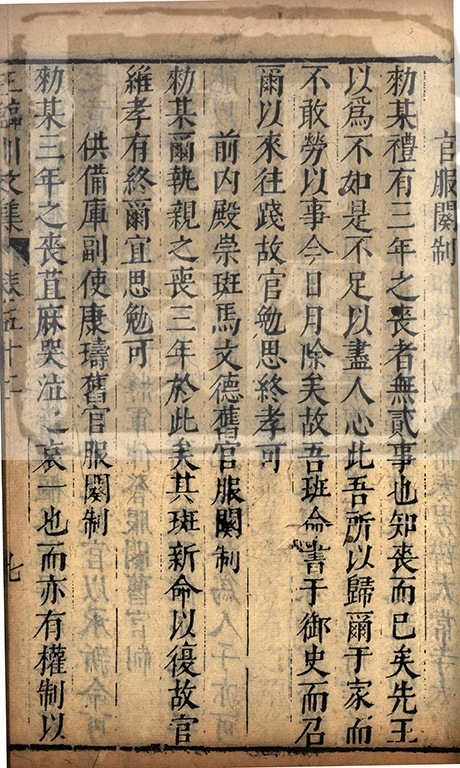 官服闋制
勑某禮有三年之喪者無貳事也知喪而已矣先王
以爲不如是不足以盡人心此吾所以歸爾于家而
不敢勞以事今日月除矣故吾班命書于御史而召
爾以來往踐故官勉思終孝可
前內殿崇班馬文德舊官服闋制
勑某爾執親之喪三年於此矣其班新命以復故官
維孝有終爾宜思勉可
供備庫副使康璹舊官服闋制
勑某三年之喪苴麻哭泣之哀一也而亦有權制以
王臨川文集 卷五十二 七